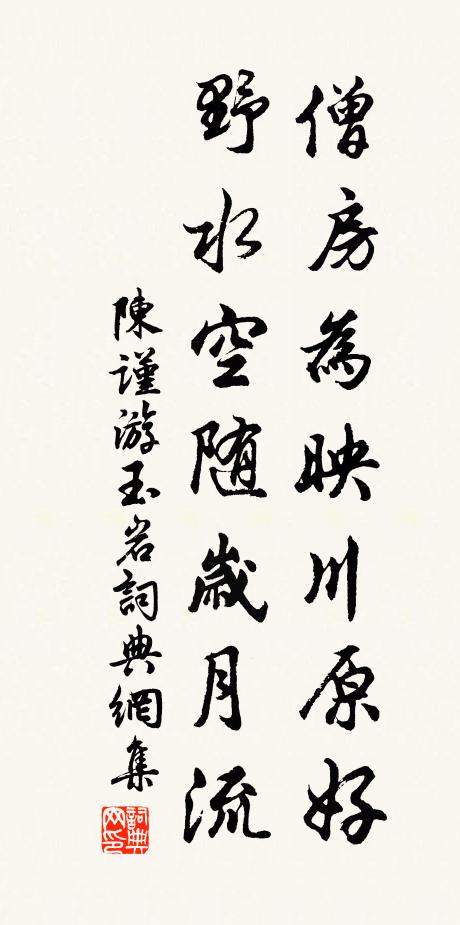 僧房為映川原好
野水空随歲月流
陳謹游玉岩詞典網集
詞典
网印